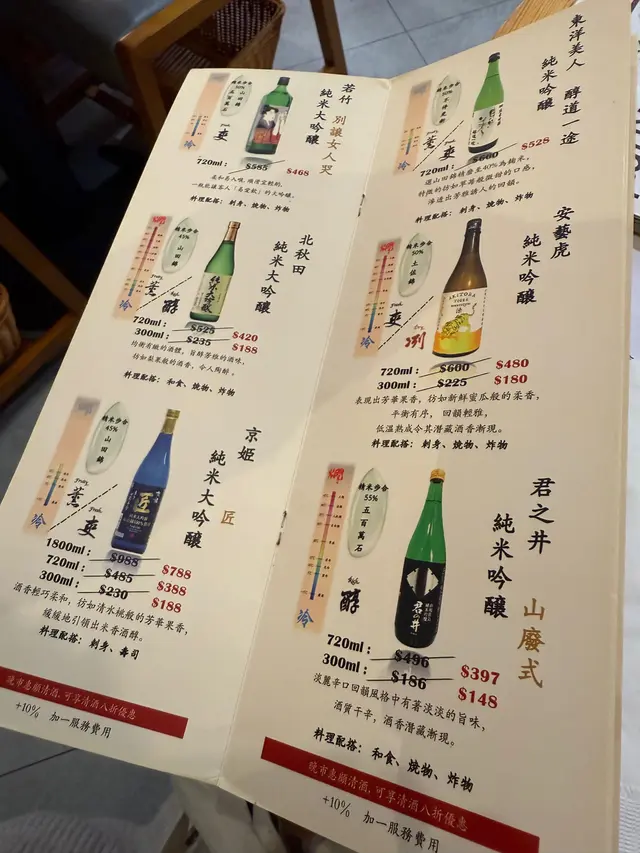 若竹 別讓女人哭
純米大吟釀
精米步合
50%
山田錦
五百萬石
爽
冷
720ml : $585 $468
料理配搭：刺身、燒物、炸物
北秋田
純米大吟釀
精米步合
45%
山田錦
燗
薰
醇
冷
720ml : $525 $420
300ml : $235 $188
均衡有緻的酒體，旨醇芳雅的酒味，
彷如梨果般的酒香，令人陶醉。
料理配搭：和食、燒物、炸物
京姬
純米大吟釀
匠
精米步合
45%
山田錦
薰
爽
冷
匠
1800ml : $985 $788
720ml : $485 $388
300ml : $230 $188
酒香輕巧柔和，彷如清水桃般的芳華果香，
緩緩地引領出米香酒醇。
料理配搭：刺身、壽司
晚市惠顧清酒，可享清酒八折優惠
+10% 加一服務費用
東洋美人 醇道一途
純米吟釀
精米步合
薰
爽
冷
720ml : $660 $528
料理配搭：刺身、燒物、炸物
安藝虎
純米吟釀
精米步合
50%
土佐錦
燗
爽
冽
冷
AKITORA
TIGER
720ml : $600 $480
300ml : $225 $180
表現出芳華果香，彷如新鮮蜜瓜般的柔香，
平衡有序，回韻輕雅，
低溫熟成令其潛藏酒香漸現。
料理配搭：刺身、燒物、炸物
君之井
純米吟釀
山廢式
精米步合
55%
五百萬石
燗
醇
冷
君の井
720ml : $496 $397
300ml : $186 $148
淡麗辛口回韻風格中有著淡淡的旨味，
酒質干辛，酒香潛藏漸現。
料理配搭：和食、燒物、炸物
晚市惠顧清酒，可享清酒八折優惠
+10% 加一服務費用